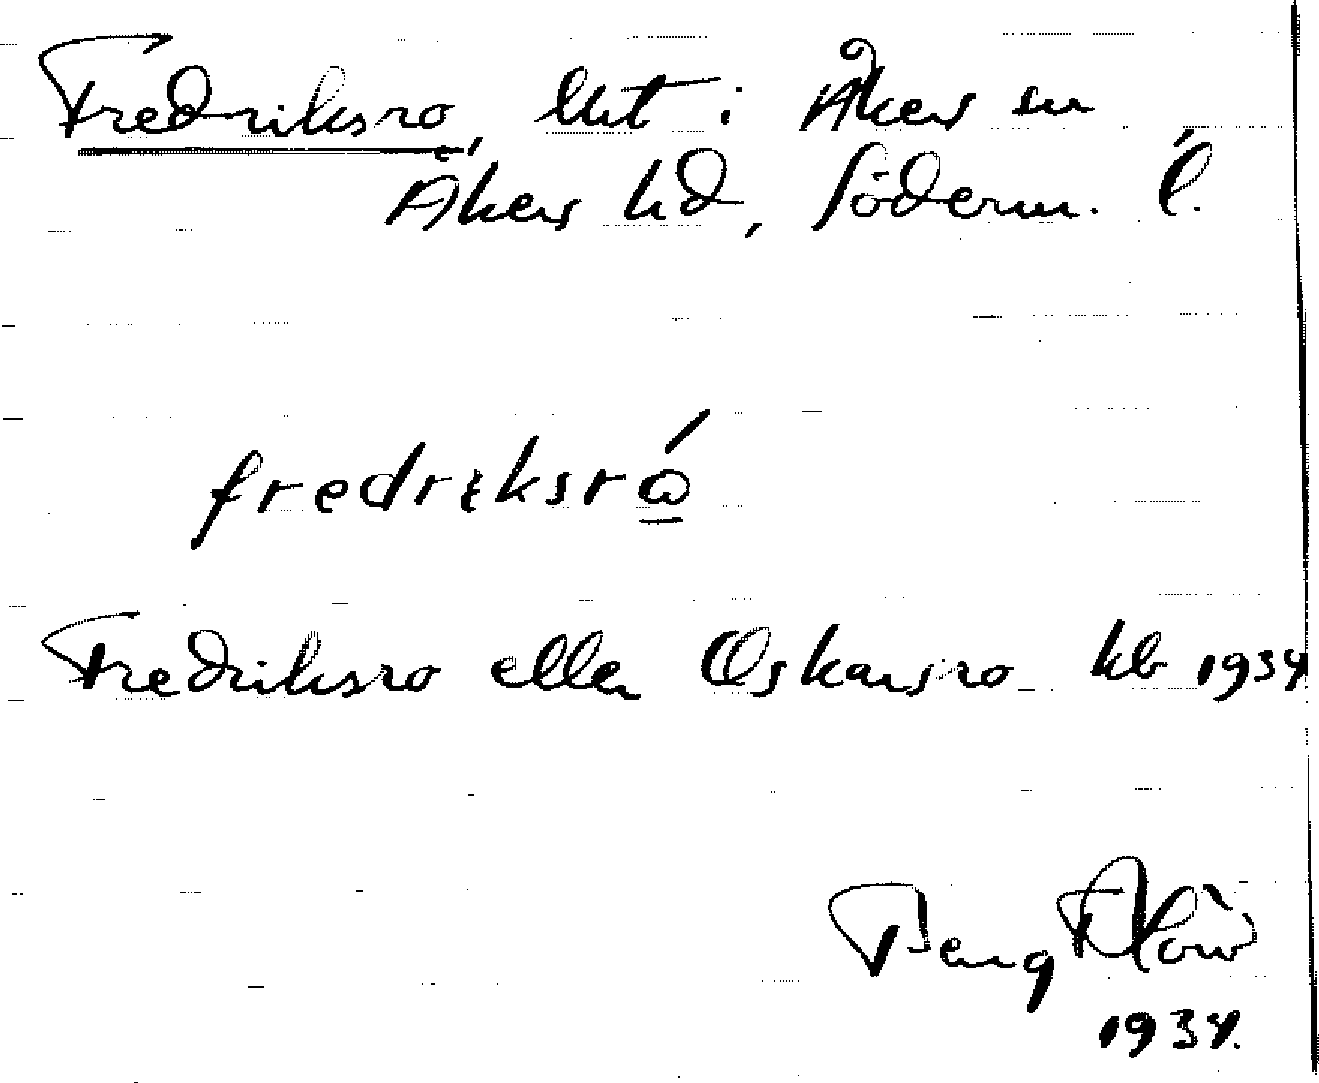 Fredriksro, lht i Åkers sn
Åkers hd, Söderm. l.
fredrɩksró̱
Fredriksro eller Oskarsro kb 1934
1934.